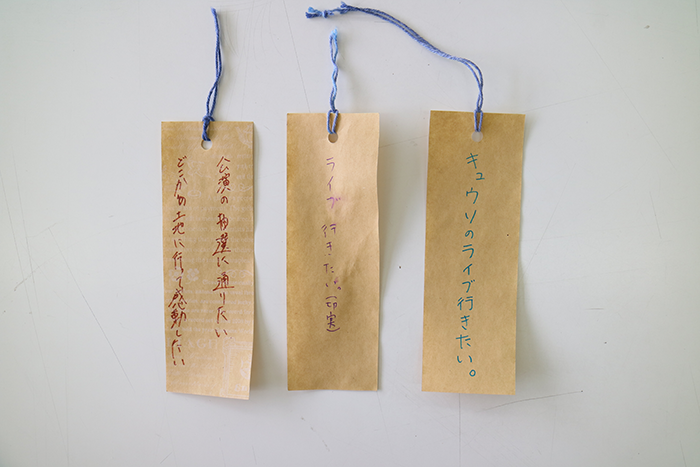 公演の抽選に通りたい
どこかの土地に行って感動したい
ライブ行きたい。(切実)
キュウソのライブ行きたい。